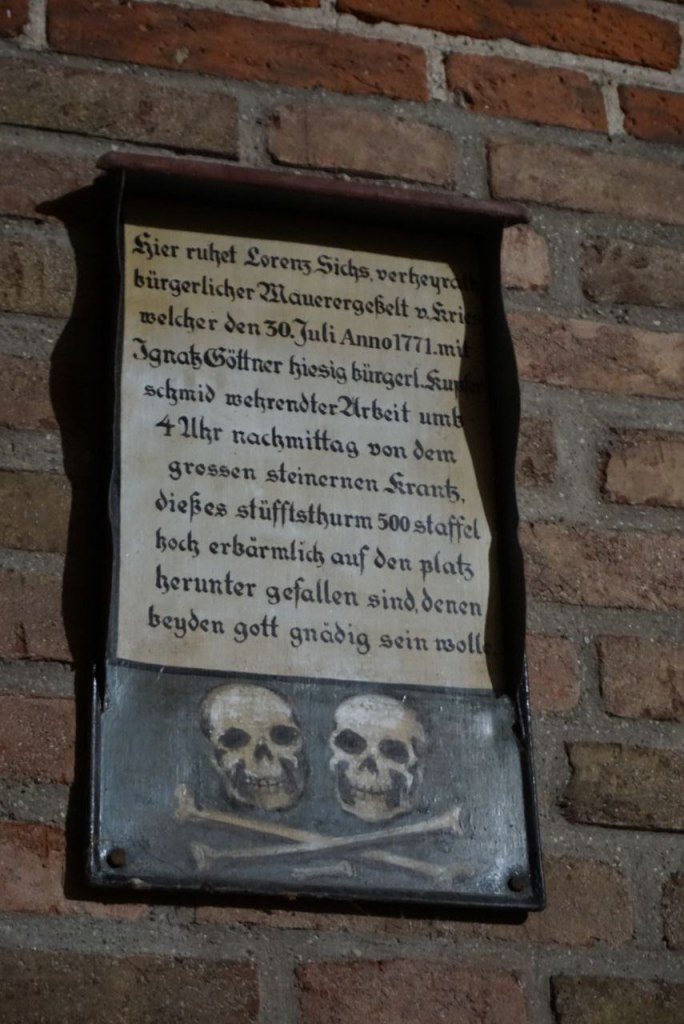 Hier ruhet Lorenz Sichs, verheyrath
bürgerlicher Mauerergeßelt v.
welcher den 30. Juli Anno 1771. mit
Ignatz Göttner hiesig bürgerl. Kupfer
schmid wehrendter Arbeit umb
4 Uhr nachmittag von dem
grossen steinernen Krantz,
dießes stüfftsthurm 500 staffel
hoch erbärmlich auf den platz
herunter gefallen sind, denen
beyden gott gnädig sein wolle.